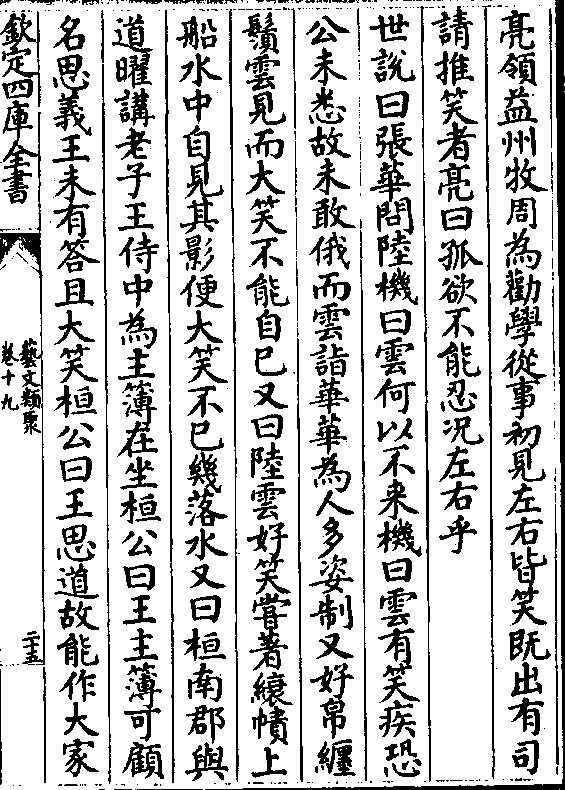 亮領益州牧周為勸學從事初見左右皆笑既出有司
請推笑者亮曰孤欲不能忍况左右乎
世說曰張華問陸機曰雲何以不来機曰雲有笑疾恐
公未悉故未敢俄而雲詣華華為人多姿制又好帛纒
鬚雲見而大笑不能自已又曰陸雲好笑嘗著縗幘上
船水中自見其影便大笑不已幾落水又曰桓南郡與
道曜講老子王侍中為主簿在坐桓公曰王主簿可顧
名思義王未有答且大笑桓公曰王思道故能作大家
欽定四庫全書
藝文類聚
卷十九
二十五